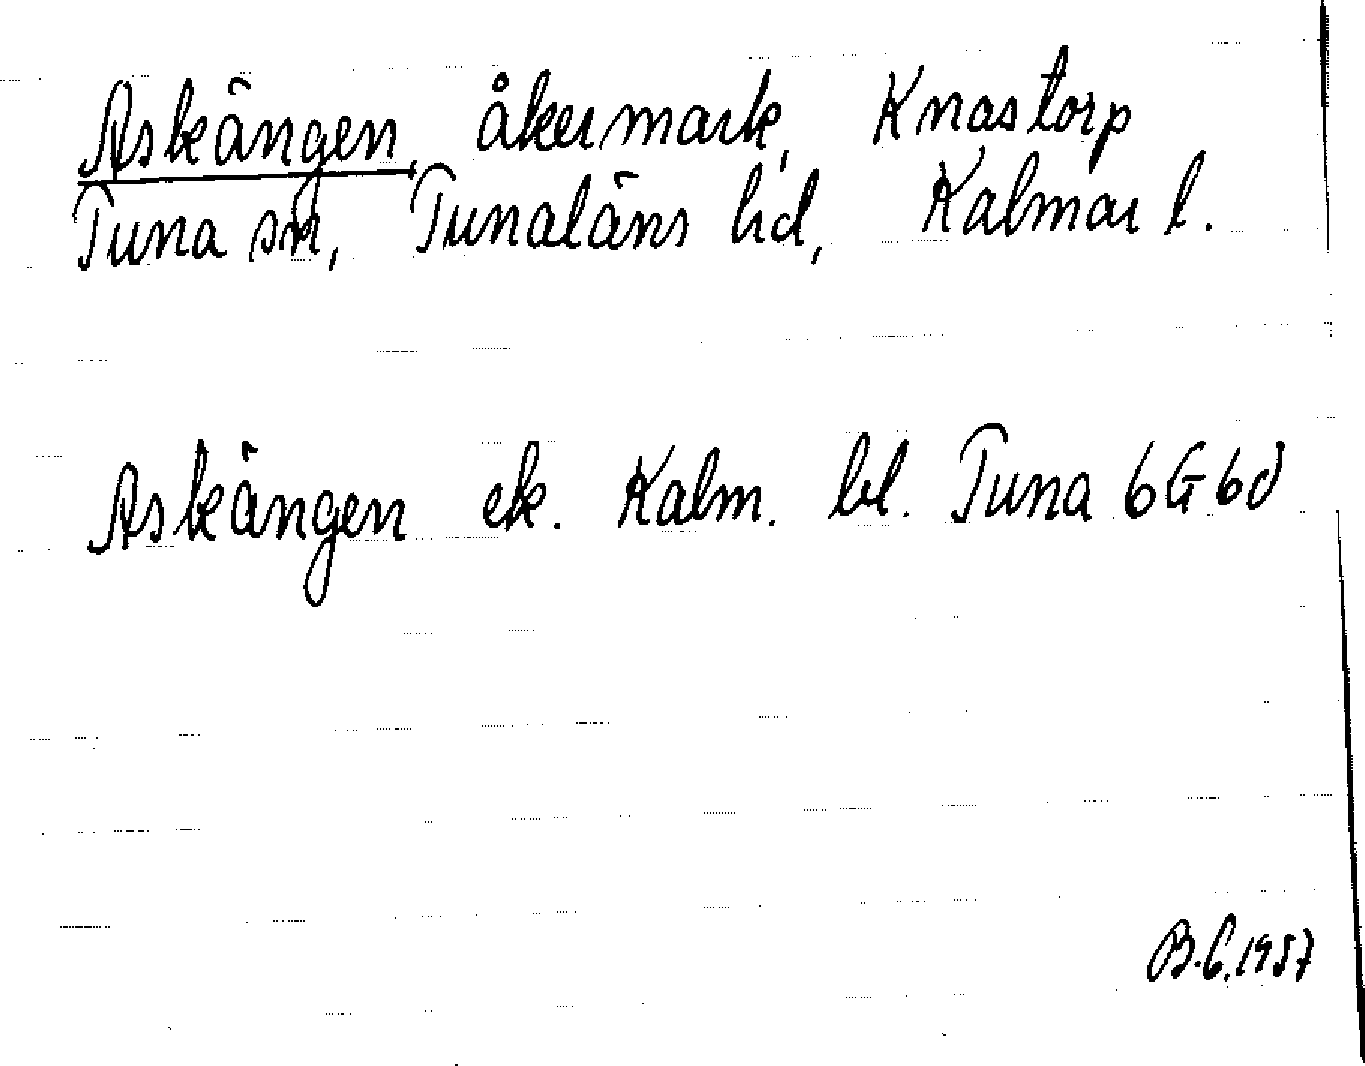 Askängen, åkermark, Knastorp
Tuna sn, Tunaläns hd, Kalmar l.
Askängen ek. Kalm. bl. Tuna 6G6d
B.C. 1957